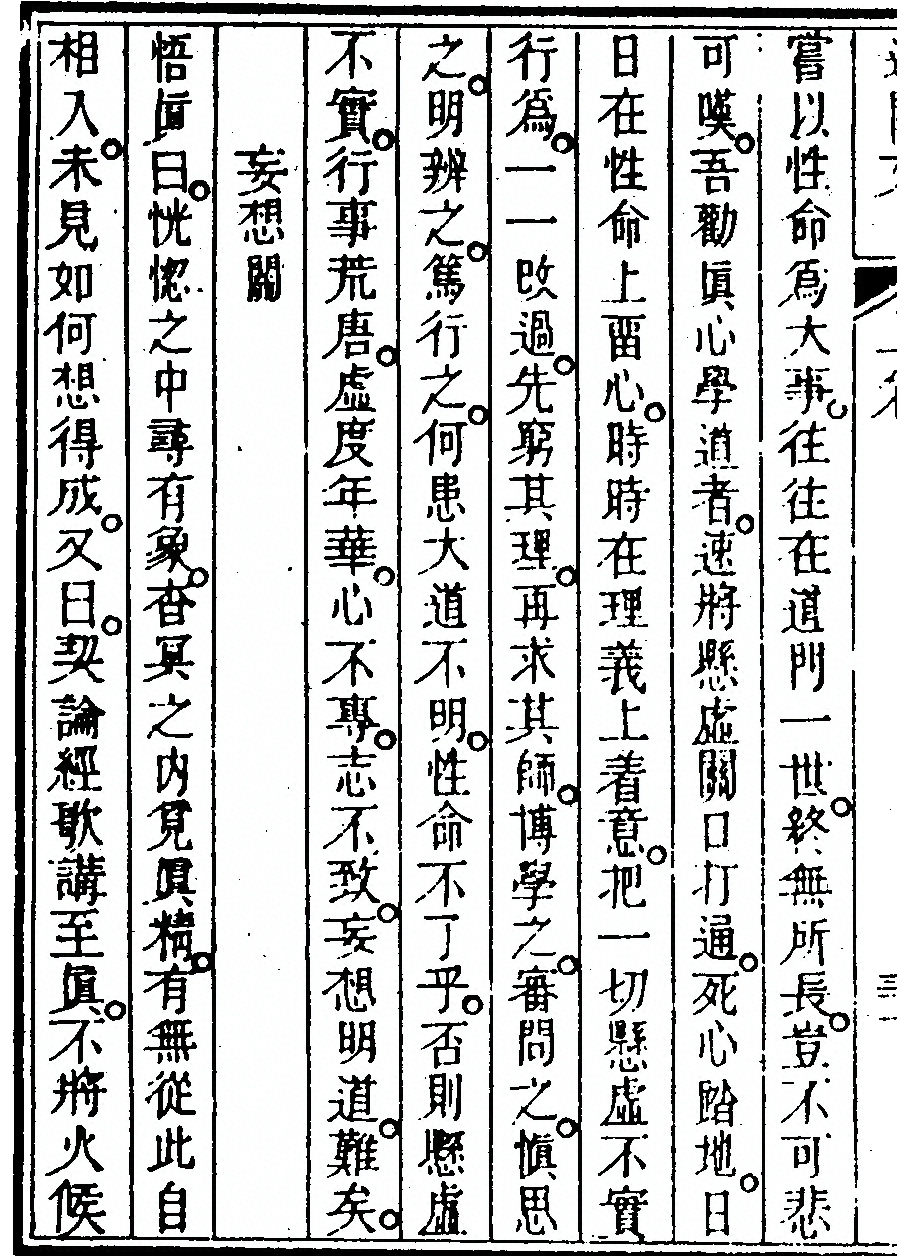 嘗以性命爲大事。往往在道門一世。終無所長。豈不可悲
可嘆。吾勸眞心學道者。速將懸虛關口打通。死心踏地。日
日在性命上畱心。時時在理義上着意。把一切懸虛不實
行爲。一一改過。先窮其理。再求其師。博學之。審問之。愼思
之。明辨之。篤行之。何患大道不明。性命不了乎。否則懸虛
不實。行事荒唐。虛度年華。心不專。志不致。妄想明道難矣。
妄想關
悟眞曰。恍惚之中尋有象。杳冥之內覓眞精。有無從此自
相入。未見如何想得成。又曰。契論經歌講至眞。不將火候